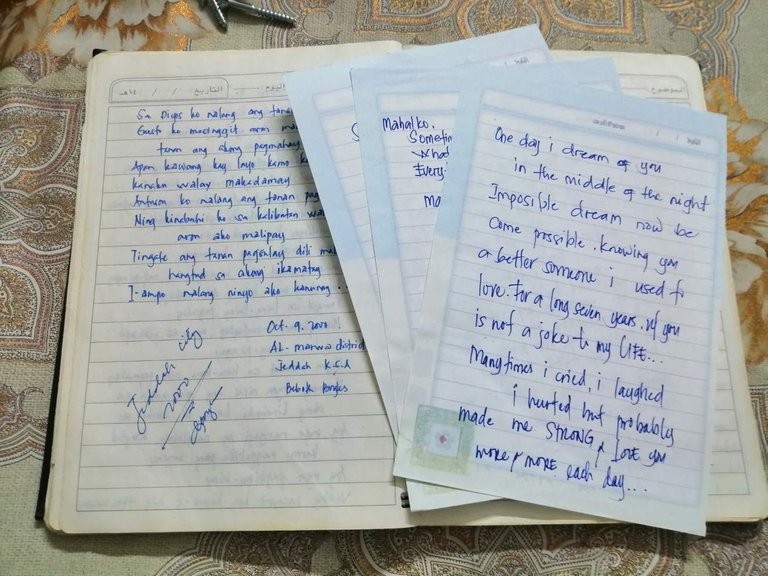 الموضوع
التاريخ / / ١٤هـ
اليوم
Sa Diyos ko nalang ang tanan
Gusto ko mosinggit aron
tanan ang akong pagmahay
Apan kawang kay layo kamo
kanako walay makadamay
Antuson ko nalang ang tanan
Ning kinabuhi ko sa kalibutan
aron ako malipay
Tingale ang tanan pagsulay dili
hangtud sa akong ikamatay
I-ampo nalang ninyo ako kanunay.
Oct. 9. 2000.
AL-marwa district
Jeddah K.S.A
Jeddah city
2000
S
Mahal ko.
Someti
What
Every
Ma
One day i dream of you
in the middle of the night
Imposible dream now be
come possible. Knowing you
a better someone i used to
love. For a long seven years. of you
is not a joke to my LIFE...
Many times i cried, i laughed
i hurted but probably
made me STRONG & love you
more & more each day...